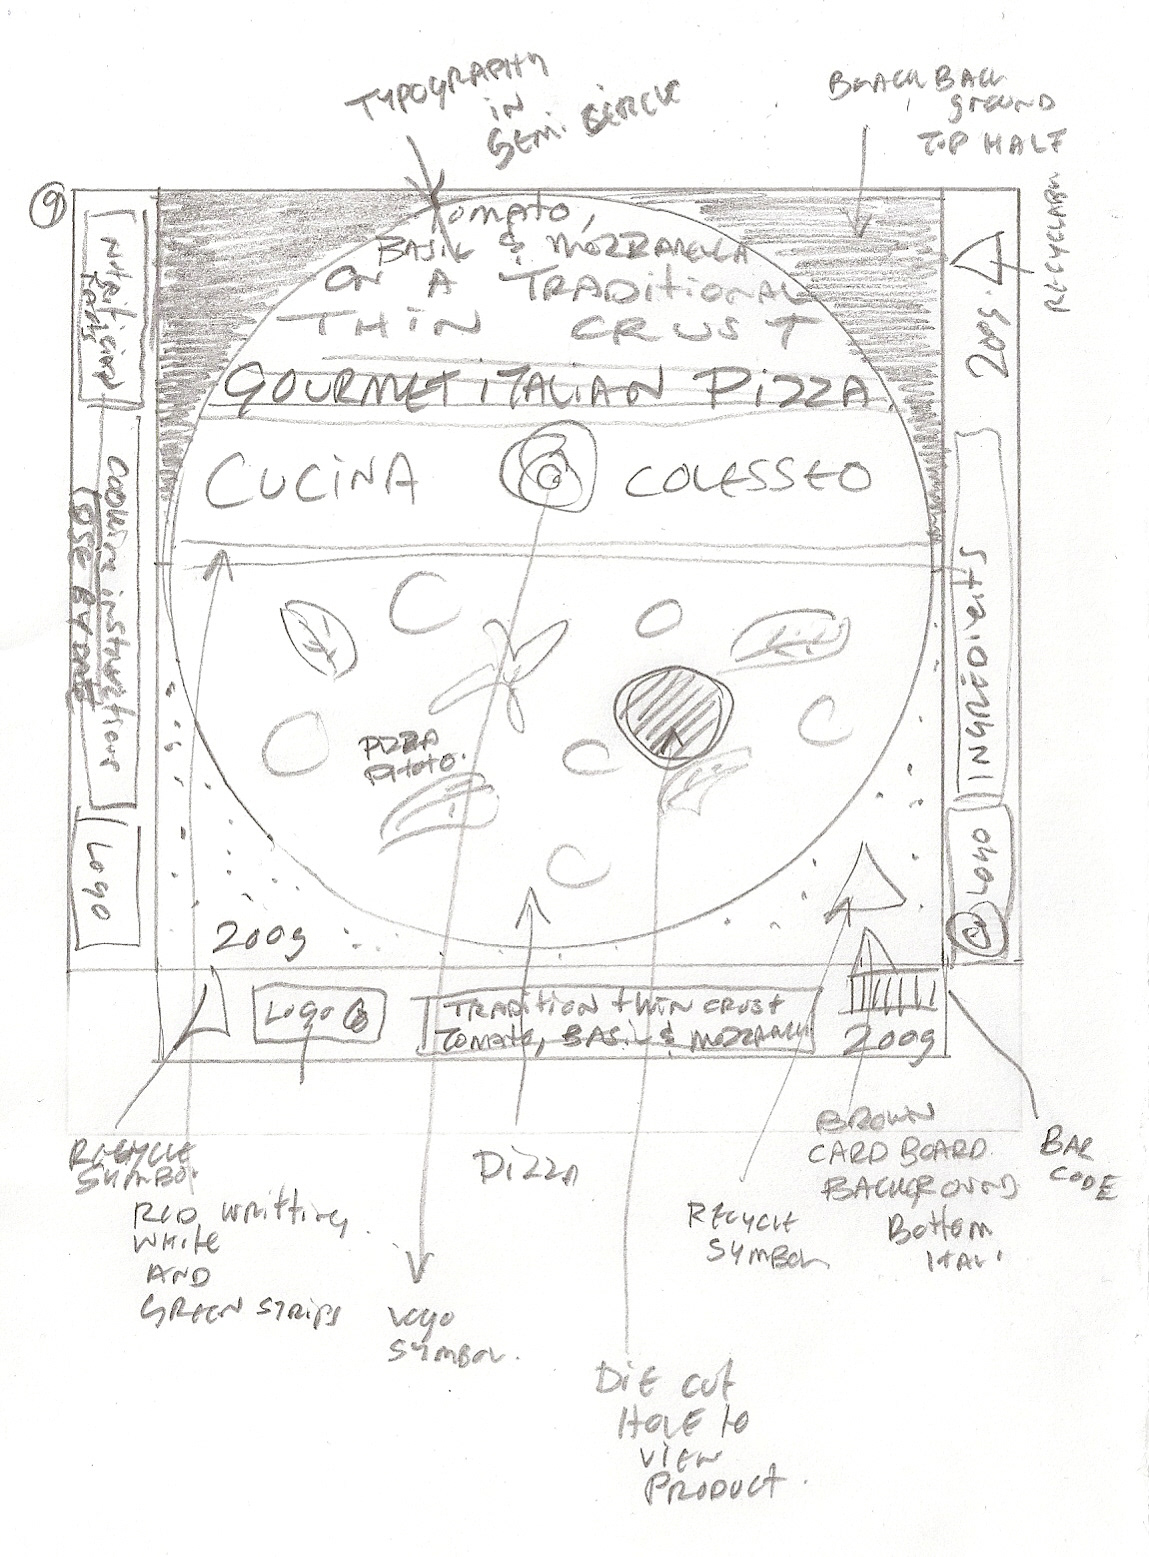 TYPOGRAPHY
IN
SEMI. CIRCLE
BLACK BACK
GROUND
TOP HALF
9
RECYCLABLE
Tomato,
BASIL & MOZZARELLA
ON A TRADITIONAL
THIN CRUST
GOURMET ITALIAN PIZZA.
CUCINA
COLESSEO
Nutritional
Facts
Cooking instructions
USE BY DATE
Logo
200g.
INGREDIENTS
Logo
PIZZA
Photo.
200g
Logo
TRADITION THIN CRUST
Tomato, BASIL & MOZZARELLA
200g
RECYCLE
SYMBOL
RED WRITTING,
WHITE
AND
GREEN STRIPS
Logo
SYMBOL.
PIZZA
DIE CUT
HOLE to
VIEW
PRODUCT.
RECYCLE
SYMBOL
BROWN
CARD BOARD.
BACKGROUND
Bottom
HALF
BAR
CODE